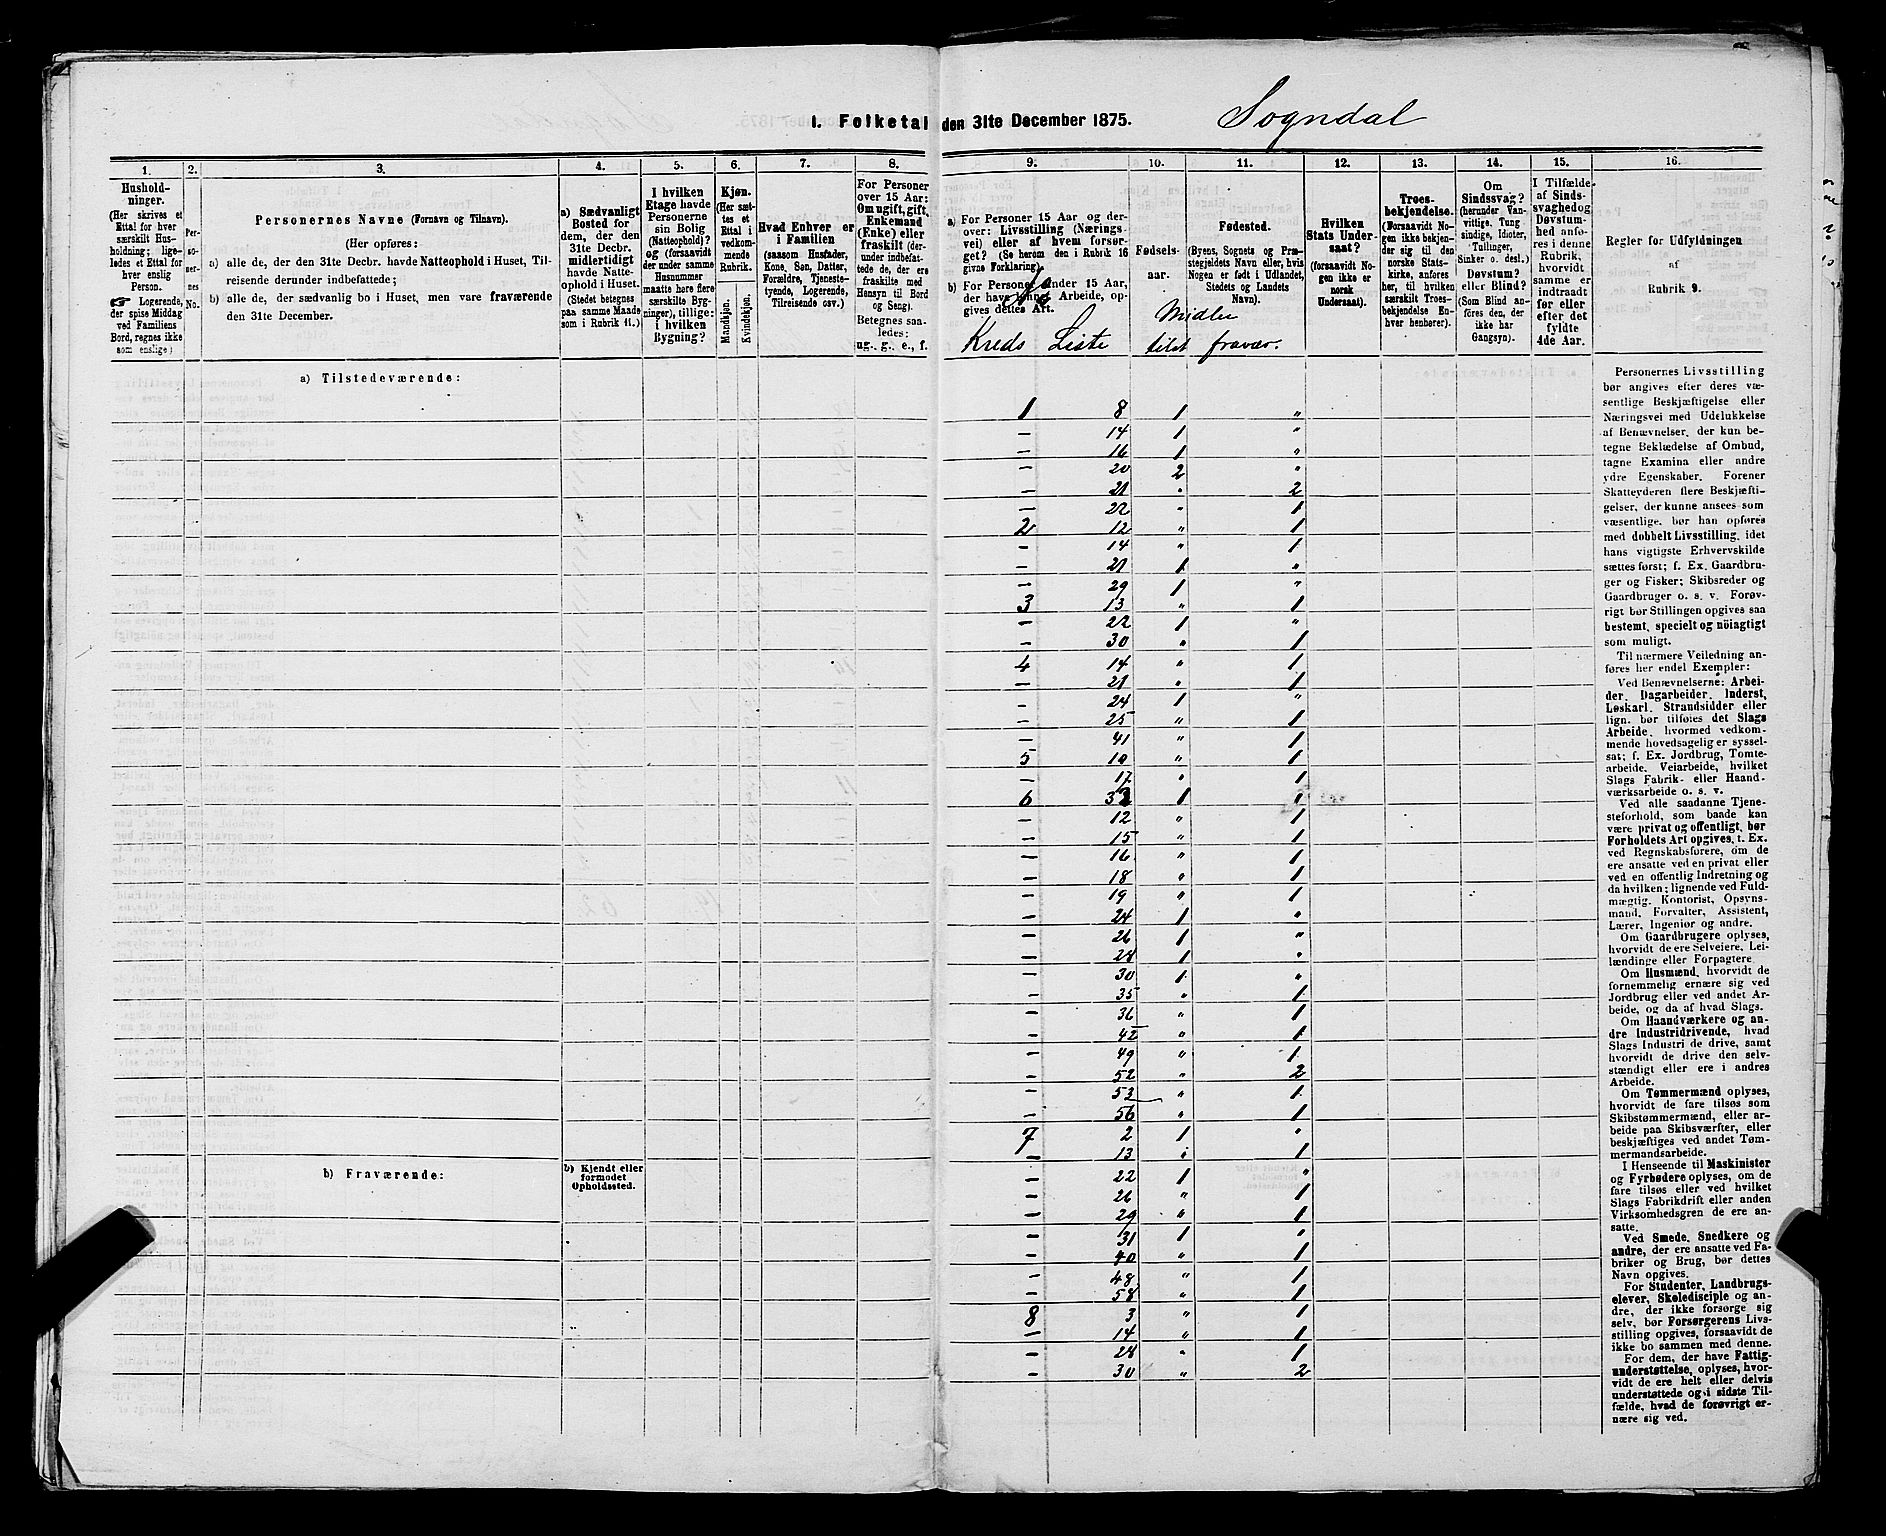 I. Folketal den 31te December 1875.
Sogndal
1.
Hushold-
ninger.
(Her skrives et
Ettal for hver
særskilt Hus-
holdning; lige-
ledes et Ettal for
hver enslig
Person.
☞ Logerende,
der spise Middag
ved Familiens
Bord, regnes ikke
som enslige)
2.
Per-
so-
ner-
nes
No.
3.
Personernes Navne (Fornavn og Tilnavn).
(Her opføres:
a) alle de, der den 31te Decbr. havde Natteophold i Huset, Til-
reisende derunder indbefattede;
b) alle de, der sædvanlig bo i Huset, men vare fraværende
den 31te December.
4.
a) Sædvanligt
Bosted for
dem, der den
31te Decbr.
midlertidigt
havde Natte-
ophold i Huset.
(Stedet betegnes
paa samme Maade
som i Rubrik 11.)
5.
I hvilken
Etage havde
Personerne
sin Bolig
(Natteophold)?
og (forsaavidt
der under samme
Husnummer
maatte høre flere
særskilte Byg-
ninger), tillige:
i hvilken
Bygning?
6.
Kjøn.
(Her sæt-
tes et
Ettal i
vedkom-
mende
Rubrik.
Mandskjøn.
Kvindekjøn.
7.
Hvad Enhver er
i Familien
(saasom Husfader,
Kone, Søn, Datter,
Forældre, Tjeneste-
tyende, Logerende,
Tilreisende osv.)
8.
For Personer
over 15 Aar:
Om ugift, gift,
Enkemand
(Enke) eller
fraskilt (der-
under indbefat-
tede de, der ere
fraskilte med
Hensyn til Bord
og Seng).
Betegnes saa-
ledes:
ug., g., e., f.
9.
a) For Personer 15 Aar og der-
over: Livsstilling (Nærings-
vei) eller af hvem forsør-
get? (Se herom i Rubrik 16
givne Forklaring).
b) For Personer under 15 Aar,
der have Arbeide, op-
gives dettes Art.
10.
Fødsels-
aar.
11.
Fødested.
(Byens, Sognets og Præ-
stegjeldets Navn eller, hvis
Nogen er født i Udlandet,
Stedets og Landets
Navn).
12.
Hvilken
Stats Under-
saat?
(forsaavidt No-
gen ikke er
norsk
Undersaat).
13.
Troes-
bekjendelse.
(Forsaavidt No-
gen ikke bekjen-
der sig til den
norske Stats-
kirke, anføres
her, til hvilken
særskilt Troes-
bekjendelse En-
hver henhører).
14.
Om
Sindssvag?
(herunder Van-
vittige, Tung-
sindige, Idioter,
Tullinger,
Sinker o. desl.)
Døvstum?
eller Blind?
(Som Blind an-
føres den, der
ikke har
Gangsyn).
15.
I Tilfælde
af Sinds-
svaghed og
Døvstum-
hed anfø-
res i denne
Rubrik,
hvorvidt
samme er
indtraadt
før eller
efter det
fyldte
4de Aar.
16.
Regler for Udfyldningen
af
Rubrik 9.
Kreds Liste
Midler
tilst fravær.
a) Tilstedeværende:
1 8 1 "
— 14 1 "
— 16 1 "
— 20 2 "
— 21 " 2
— 22 " 1
2 12 " 1
— 14 " 1
— 21 1 "
— 29 1 "
3 13 " 1
— 22 1 "
— 30 " 1
4 14 " 1
— 21 " 1
— 24 1 "
— 25 " 1
— 41 " 1
5 10 " 1
— 17 " 1
6 1 "
— 12 " 1
— 15 " 1
— 16 " 1
— 18 " 1
— 19 " 1
— 24 1 "
— 26 1 "
— 28 1 "
— 30 1 "
— 35 " 1
— 36 " 1
— 42 " 1
— 49 " 1
— 52 " 2
— 53 " 1
— 56 " 1
7 2 1 "
— 13 " 1
b) Fraværende:
b) Kjendt eller
formodet
Opholdssted.
— 22 1 "
— 26 " 1
— 29 " 1
— 31 1 "
— 40 " 1
— 48 " 1
— 58 " 1
8 3 " 1
— 14 " 1
— 28 " 1
— 30 " 2
Personernes Livsstilling
bør angives efter deres væ-
sentlige Beskjæftigelse eller
Næringsvei med Udelukkelse
af Benævnelser, der kun be-
tegne Beklædelse af Ombud,
tagne Examina eller andre
ydre Egenskaber. Forener
Skatteyderen flere Beskjæfti-
gelser, der kunne ansees som
væsentlige, bør han opføres
med dobbelt Livsstilling, idet
hans vigtigste Erhvervskilde
sættes først; f. Ex. Gaardbru-
ger og Fisker; Skibsreder og
Gaardbruger o. s. v. Forøv-
rigt bør Stillingen opgives saa
bestemt, specielt og nöiagtigt
som muligt.
Til nærmere Veiledning an-
føres her endel Exempler:
Ved Benævnelserne: Arbei-
der, Dagarbeider, Inderst,
Løskarl, Strandsidder eller
lign. bør tilføies det Slags
Arbeide, hvormed vedkom-
mende hovedsagelig er syssel-
sat; f. Ex. Jordbrug, Tomte-
arbeide, Veiarbeide, hvilket
Slags Fabrik- eller Haand-
værksarbeide o. s. v.
Ved alle saadanne Tjene-
steforhold, som baade kan
være privat og offentligt, bør
Forholdets Art opgives, t. Ex.
ved Regnskabsførere, om de
ere ansatte ved en privat eller
ved en offentlig Indretning og
da hvilken; lignende ved Fuld-
mægtig, Kontorist, Opsyns-
mand, Forvalter, Assistent,
Lærer, Ingeniør og andre.
Om Gaardbrugere oplyses,
hvorvidt de ere Selveiere, Lei-
lændinge eller Forpagtere.
Om Husmænd, hvorvidt de
fornemmelig ernære sig ved
Jordbrug eller ved andet Ar-
beide, og da af hvad Slags.
Om Haandværkere og an-
dre Industridrivende, hvad
Slags Industri de drive, samt
hvorvidt de drive den selv-
stændigt eller ere i andres
Arbeide.
Om Tømmermænd oplyses,
hvorvidt de fare tilsøs som
Skibstømmermænd, eller ar-
beide paa Skibsværfter, eller
beskjæftiges ved andet Tøm-
mermandsarbeide.
I Henseende til Maskinister
og Fyrbødere oplyses, om de
fare tilsøs eller ved hvilket
Slags Fabrikdrift eller anden
Virksomhedsgren de ere an-
satte.
Ved Smede, Snedkere og
andre, der ere ansatte ved Fa-
briker og Brug, bør dettes
Navn opgives.
For Studenter, Landbrugs-
elever, Skoledisciple og an-
dre, der ikke forsørge sig
selv, bør Forsørgerens Livs-
stilling opgives, forsaavidt de
ikke bo sammen med denne.
For dem, der have Fattig-
understøttelse, oplyses, hvor-
vidt de ere helt eller delvis
understøttede og i sidste Til-
fælde, hvad de forøvrigt er-
nære sig ved.